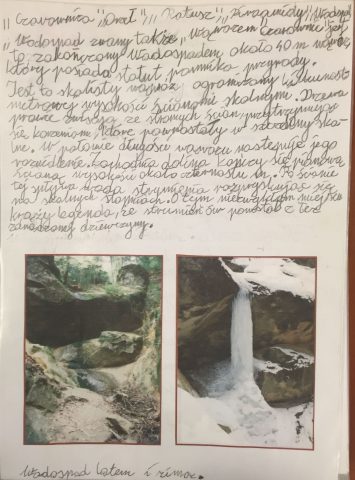 „Czarownica", „Orzeł", „Ratusz", „Piramidy", „Wodospad"
„Wodospad zwany także „wąwozem Czarownic jest
to, zakończony wodospadem około 10 m wąwóz
który posiada statut pomnika przyrody.
Jest to skalisty wąwóz ograniczony
metrowej wysokości ścianami skalnymi. Drzewa
prawie zwisają ze stromych ścian przytrzymując
się korzeniami, które powrastały w szczeliny skal-
ne. W połowie długości wąwozu następuje jego
rozwidlenie. Zachodnia dolina kończy się pionową
ścianą wysokości około czternastu m. Po ścianie
tej spływa woda strumienia rozpryskując się
na skalnych stopniach. O tym niezwykłym miejscu
krąży legenda, że strumień ów powstał z łez
zaklętej dziewczyny.
Wodospad latem i zimą.